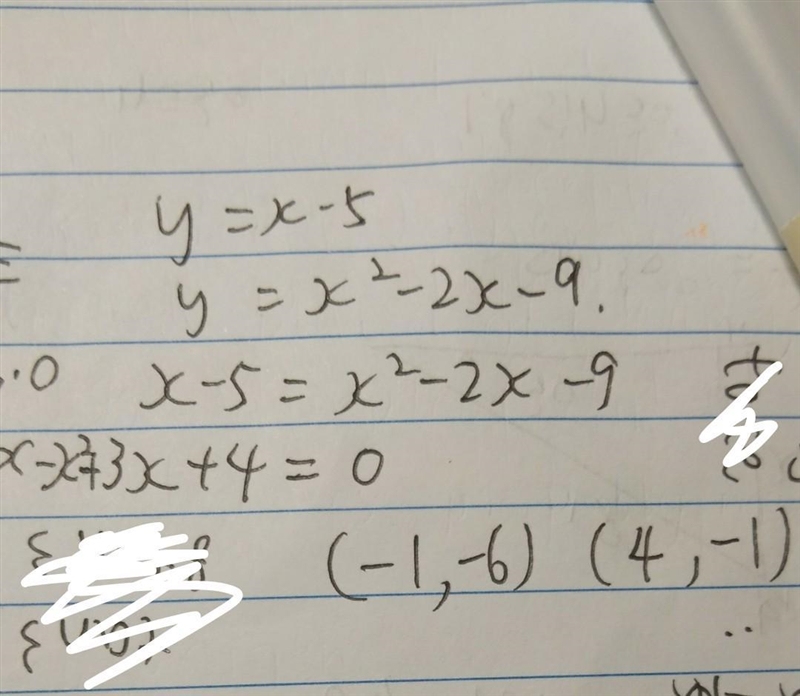 y = x - 5
y = x² - 2x - 9.
.0 x - 5 = x² - 2x - 9
x - x² + 3x + 4 = 0
(-1, -6) (4, -1)